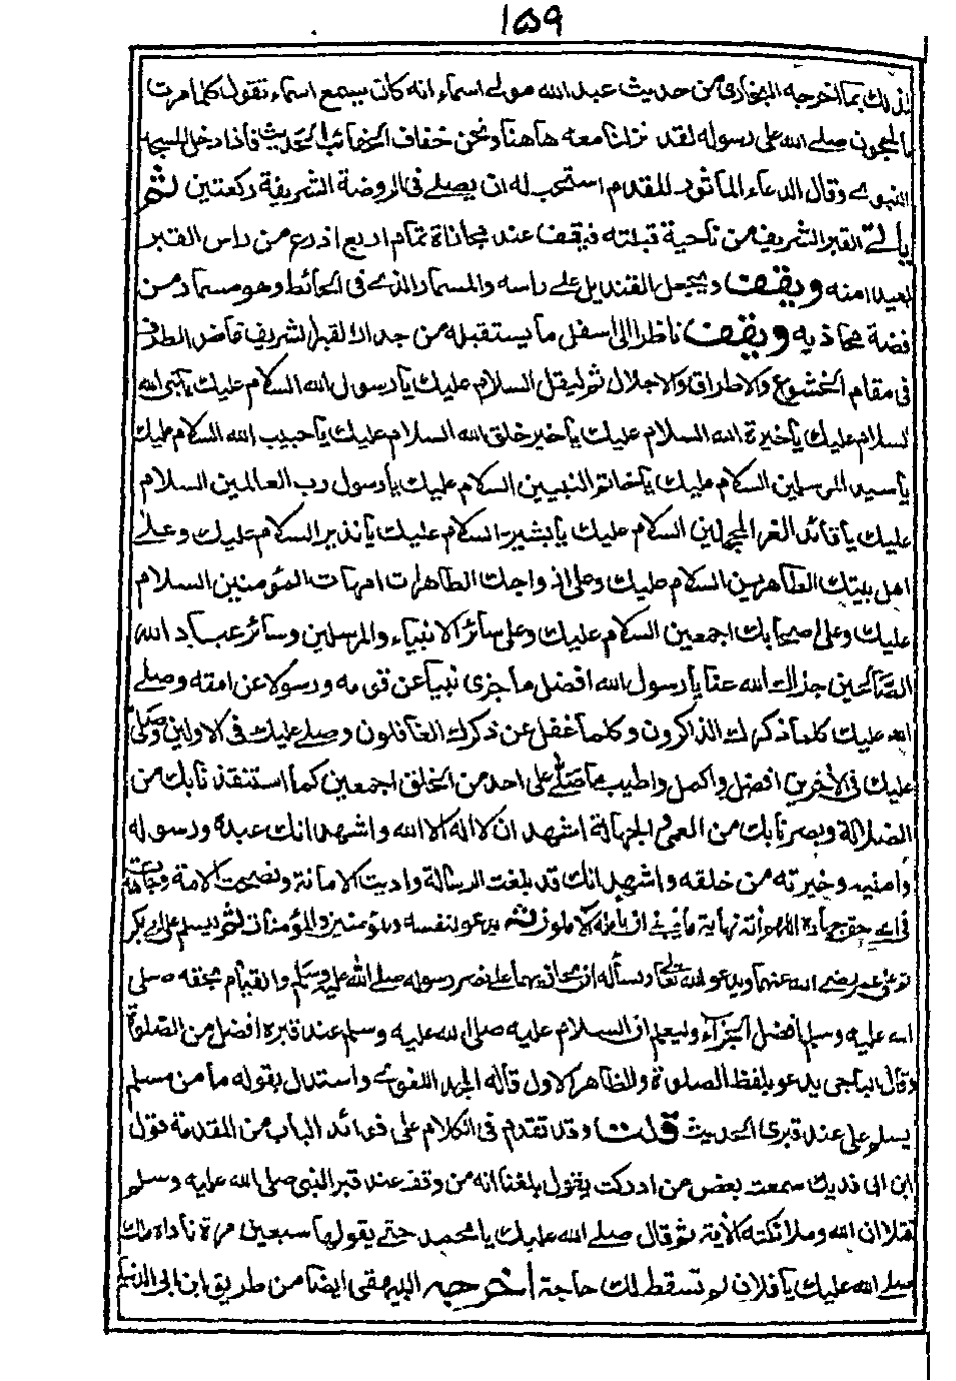 ١٥٩
لذلك بما اخرجه البخاري من حديث عبد الله مولے اسماء انه كان يسمع اسماء تقول كلما مرت
بالحجون صلے الله على رسوله لقد نزلنا معه هاهنا ونحن خفاف الحقائب الحديث فاذا دخل المسجد
النبوے وقال الدعاء الماثور المقدم استحب له ان يصلے فى الروضة الشريفة ركعتين ثم
ياتے القبر الشريف من ناحية قبلته فيقف عند محاذاة تمام اربع اذرع من راس القبر
بعيدا منه ويقف ويجعل القنديل علے راسه والمسمار الذے فى الحائط وهو مسمار من
فضة محاذيه ويقف ناظرا الى اسفل ما يستقبله من جدار القبر الشريف غاض الطرف
فى مقام الخشوع والاطراق والاجلال ثم ليقل السلام عليك يا رسول الله السلام عليك يا نبى الله
السلام عليك يا خيرة الله السلام عليك يا خير خلق الله السلام عليك يا حبيب الله السلام عليك
يا سيد المرسلين السلام عليك يا خاتم النبيين السلام عليك يا رسول رب العالمين السلام
عليك يا قائد الغر المحجلين السلام عليك يا بشير السلام عليك يا نذير السلام عليك وعلے
اهل بيتك الطاهرين السلام عليك وعلى ازواجك الطاهرات امهات المؤمنين السلام
عليك وعلى اصحابك اجمعين السلام عليك وعلى سائر الانبياء والمرسلين وسائر عباد الله
الصالحين جزاك الله عنا يا رسول الله افضل ما جزى نبيا عن قومه ورسولا عن امته وصلے
الله عليك كلما ذكرك الذاكرون وكلما غفل عن ذكرك الغافلون وصلے عليك فى الاولين وصلى
عليك فى الاخرين افضل واكمل واطيب ما صلى على احد من الخلق اجمعين كما استنقذنا بك من
الضلالة وبصرنا بك من العمى والجهالة اشهد ان لا اله الا الله واشهد انك عبده ورسوله
وامينه وخيرته من خلقه واشهد انك قد بلغت الرسالة واديت الامانة ونصحت الامة وجاهدت
فى الله حق جهاده اللهم اته نهاية ما ينبغے ان يامله الاملون ثم يدعو لنفسه وللمؤمنين والمؤمنات ثم يسلم على ابى بكر
وعلى عمر رضے الله عنهما ويدعو الله تعالے ويسأله ان يجازيهما على نصر رسوله صلے الله عليه وسلم والقيام بحقه صلى
الله عليه وسلم افضل الجزاء وليعلم ان السلام عليه صلى الله عليه وسلم عند قبره افضل من الصلوة
وقال الباجى يدعو بلفظ الصلوة والظاهر الاول قاله المجد اللغوے واستدل بقوله ما من مسلم
يسلم على عند قبرى الحديث قلت وقد تقدم فى الكلام على فوائد الباب من المقدمة قول
ابن ابى فديك سمعت بعض من ادركت يقول بلغنا انه من وقف عند قبر النبى صلى الله عليه وسلم
فتلا ان الله وملائكته الاية ثم قال صلے الله عليك يا محمد حتے يقولها سبعين مرة ناداه ملك
صلے الله عليك يا فلان لم تسقط لك حاجة اخرجه البيهقى ايضا من طريق ابن ابى الدنيا